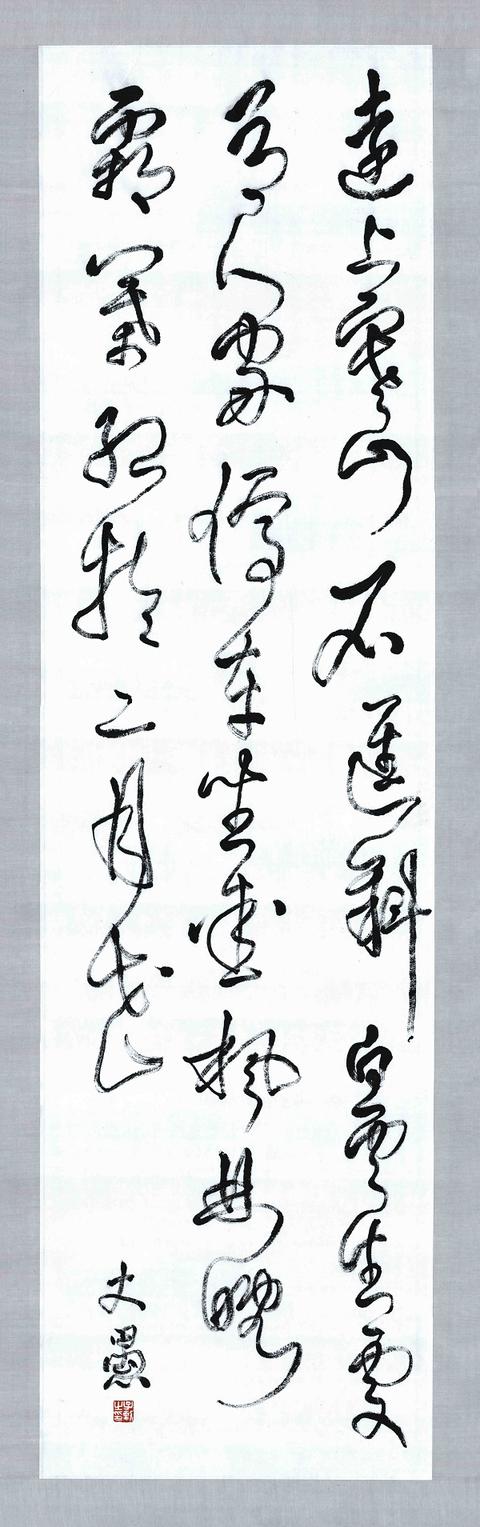 遠上寒山石逕斜白雲生處
有人家停車坐愛楓林晚
霜葉紅於二月花
大愚